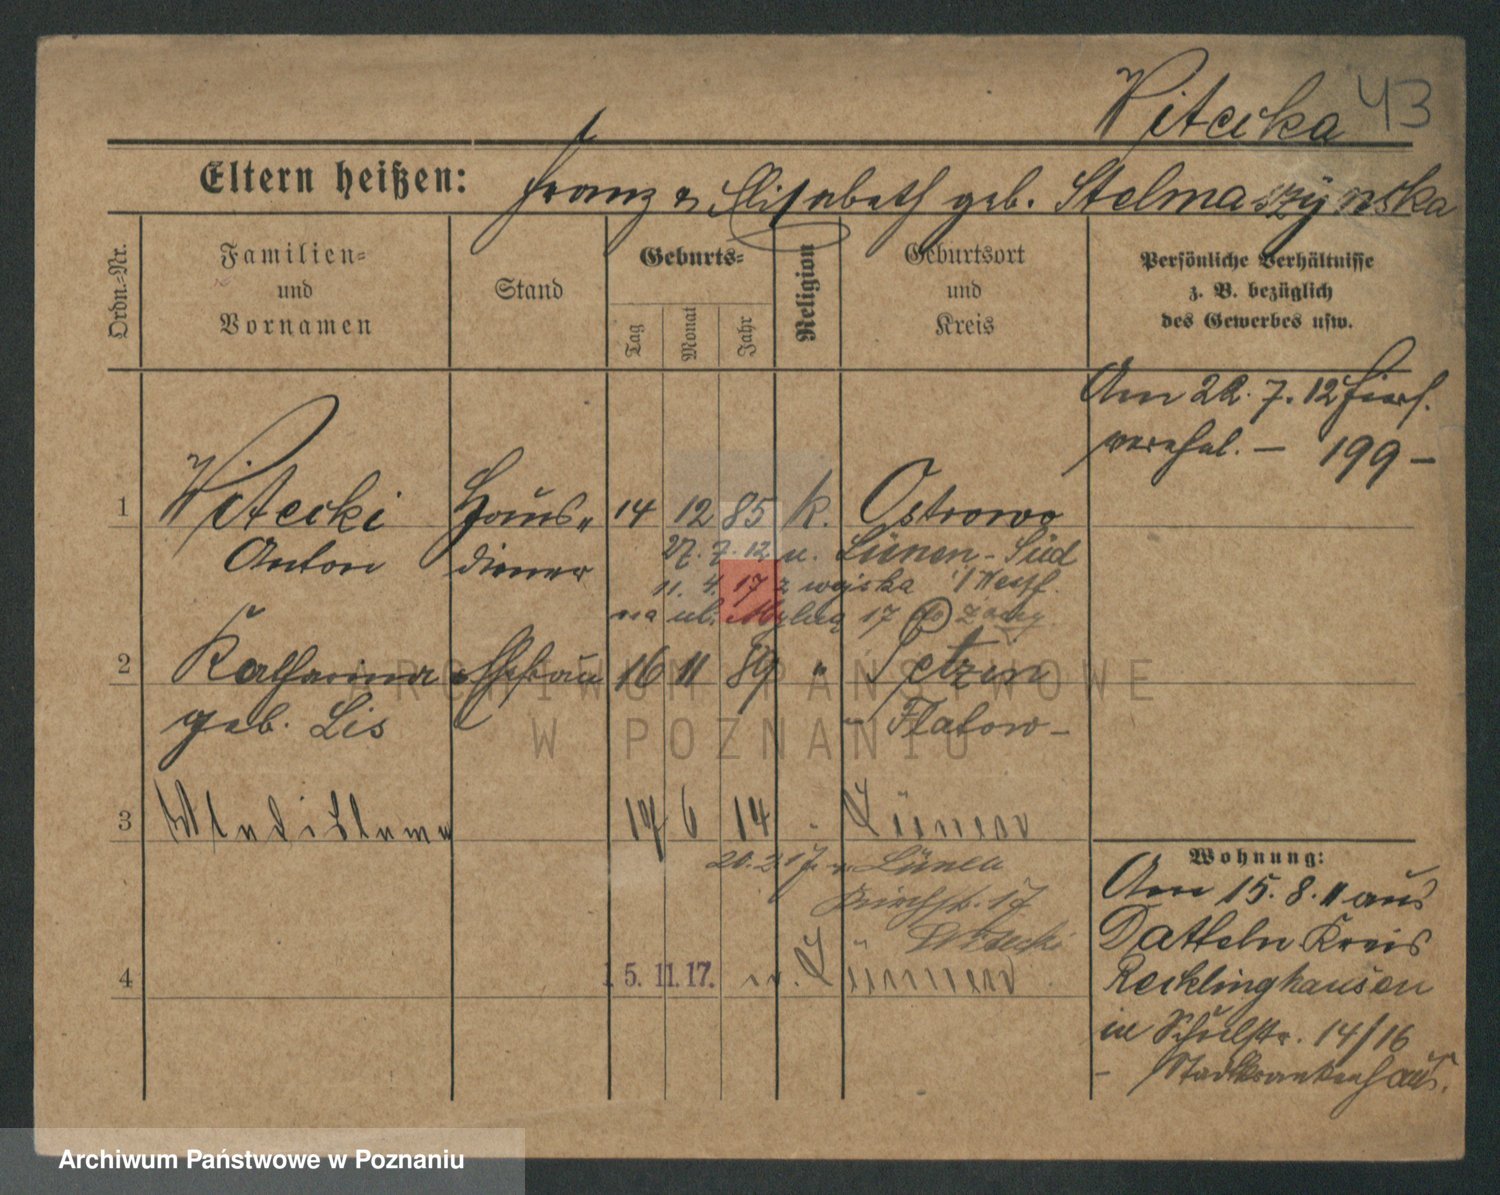 Witecka 43
Eltern heißen: Franz & Elisabeth geb. Stelmaszýnska
Ordn.-Nr.
Familien-
und
Vornamen
Stand
Geburts-
Tag
Monat
Jahr
Religion
Geburtsort
und
Kreis
Persönliche Verhältnisse
z. B. bezüglich
des Gewerbes usw.
Am 22. 7. 12 hierf.
verehel. — 199 —
1 Witecki Haus- 14 12 85 k. Ostrowo
Anton diener
27. 7. 12 n. Lünen-Süd
11. 4. 17 z wojska i/Westf.
na ul. 17 z
2 Katharina Ehefrau 16 11 89 " Petzin
geb. Lis Flatow -
3 Wladislawa 19 6 14 Lünen
20. 2. 17. n. Lünen
Kirchstr. 17
Witecki
4 15. 11. 17. n. Lünen
Wohnung:
Am 15. 8. 11 aus
Datteln Kreis
Recklinghausen
in Schulstr. 14/16
- Stadtkrankenhaus.
ARCHIWUM PAŃSTWOWE
W POZNANIU
Archiwum Państwowe w Poznaniu